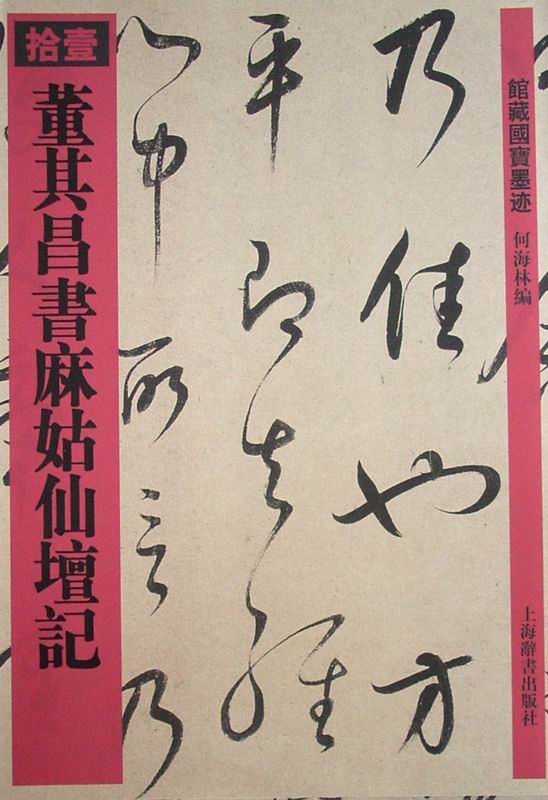 拾壹
董其昌書麻姑仙壇記
館藏國寶墨迹
何海林编
上海辭書出版社
乃佳也方
平即知經
心中所言乃